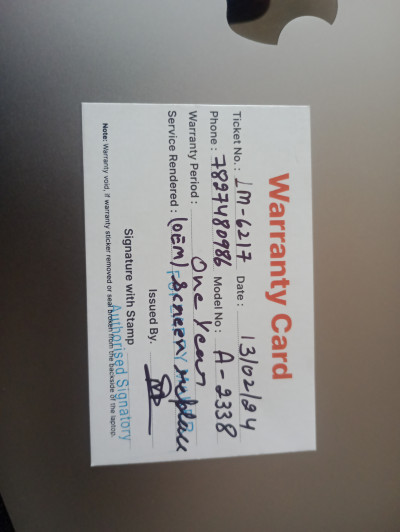 Warranty Card
Ticket No.: LM-6217 Date: 13/02/24
Phone: 7827480986 Model No: A-2338
Warranty Period: One Year
Service Rendered: (OEM) Screen replace
Issued By.
Signature with Stamp
Authorised Signatory
Note: Warranty void, if warranty sticker removed or seal broken from the backside of the laptop.